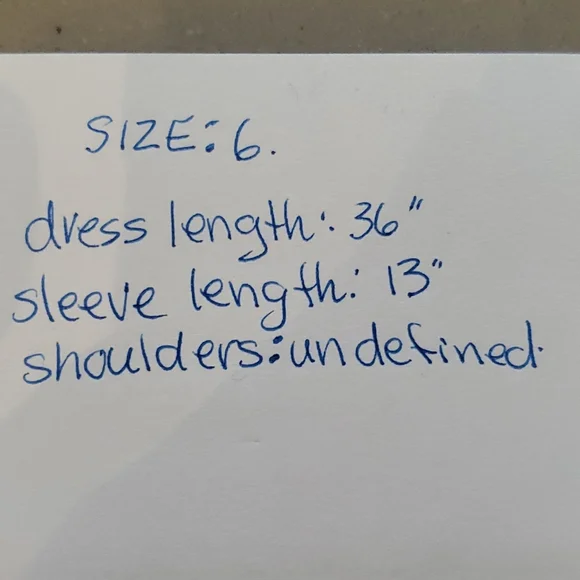 SIZE: 6.
dress length: 36"
sleeve length: 13"
shoulders: undefined.